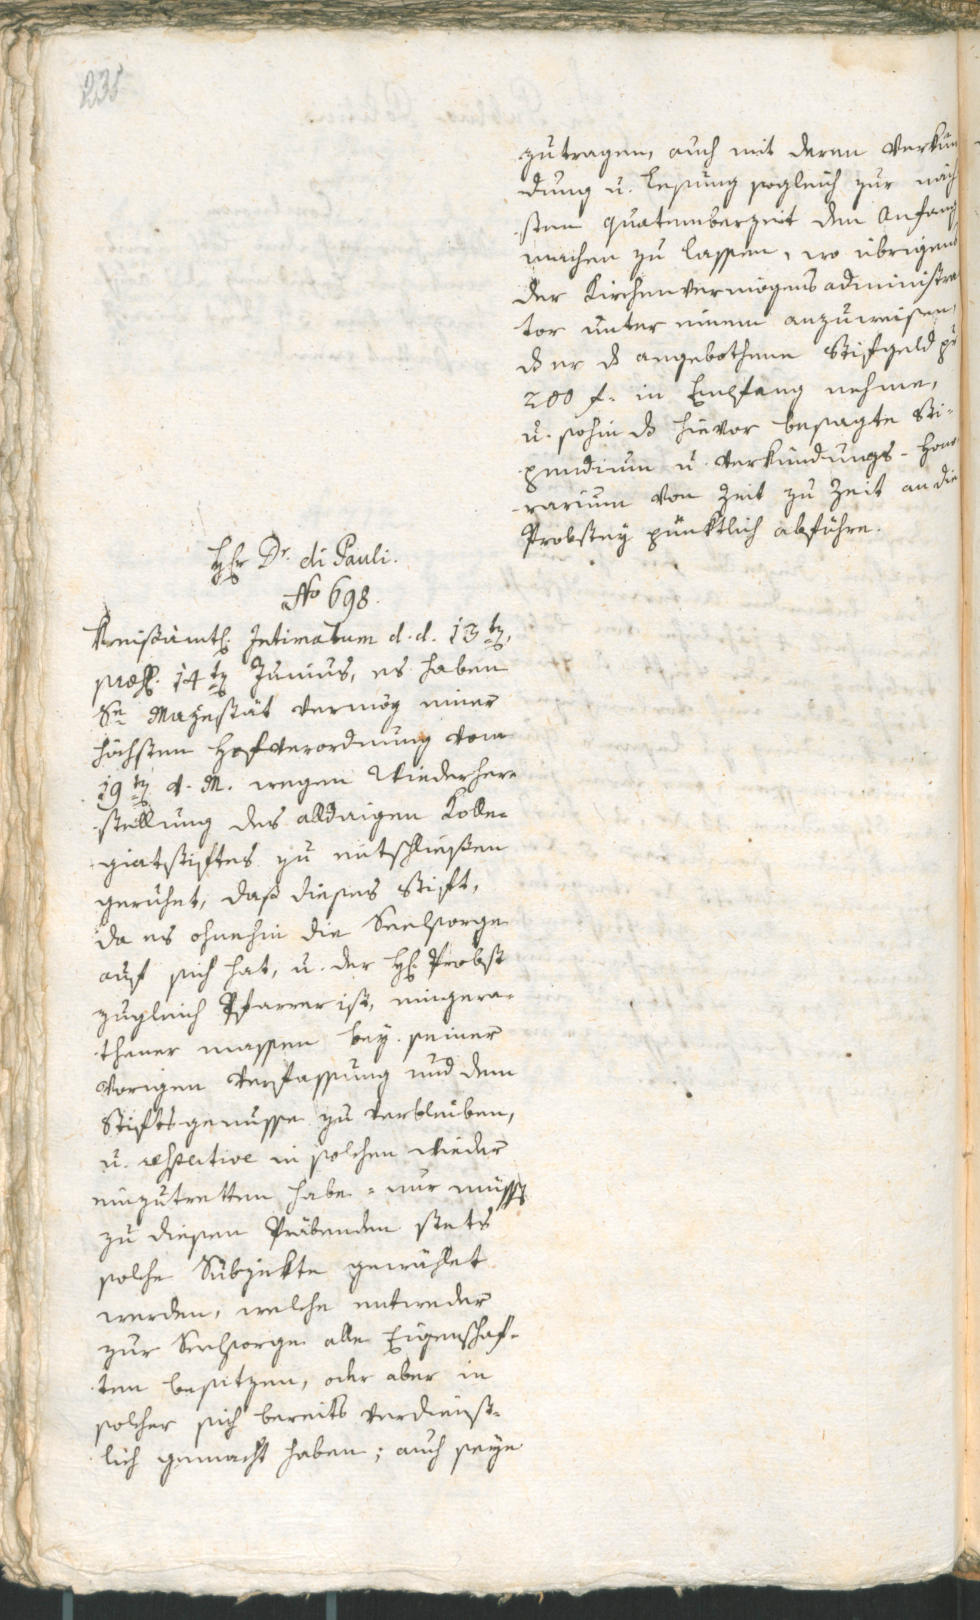 235
zutragen, auch mit deren Verkün
dung u. Lesung sogleich zur näch
sten Quatemberzeit den Anfang
machen zu lassen, wo übrigens
der Kirchenvermögens administra
tor unter einem anzuweisen,
dß er dß angebothene Stifgeld pr
200 f. in Empfang nehme,
u. sohin dß hievor besagte Sti-
pendium u. Verkündungs-Hono
rarium von Zeit zu Zeit an die
Probstey pünktlich abführe.
Hr Dr. di Pauli.
No 698.
Kreisämtl. Intimatum d. d. 13ten,
præs. 14ten Junius, es haben
Se Majestät vermög einer
höchsten Hofverordnung vom
19ten v. M. wegen Wiederher-
stellung des alldaigen Kolle-
giatstiftes zu entschließen
geruhet, daß dieses Stift,
da es ohnehin die Seelsorge
auf sich hat, u. der H. Probst
zugleich Pfarrer ist, eingera-
thener massen bey seiner
vorigen Verfassung und dem
Stiftsgenusse zu verbleiben,
u. respective in solchen wieder
einzutretten habe = nur müssen
zu diesen Präbenden stets
solche Subjekte gewählet
werden, welche entweder
zur Seelsorge alle Eigenschaf-
ten besitzen, oder aber in
solcher sich bereits verdienst-
lich gemacht haben; auch seye